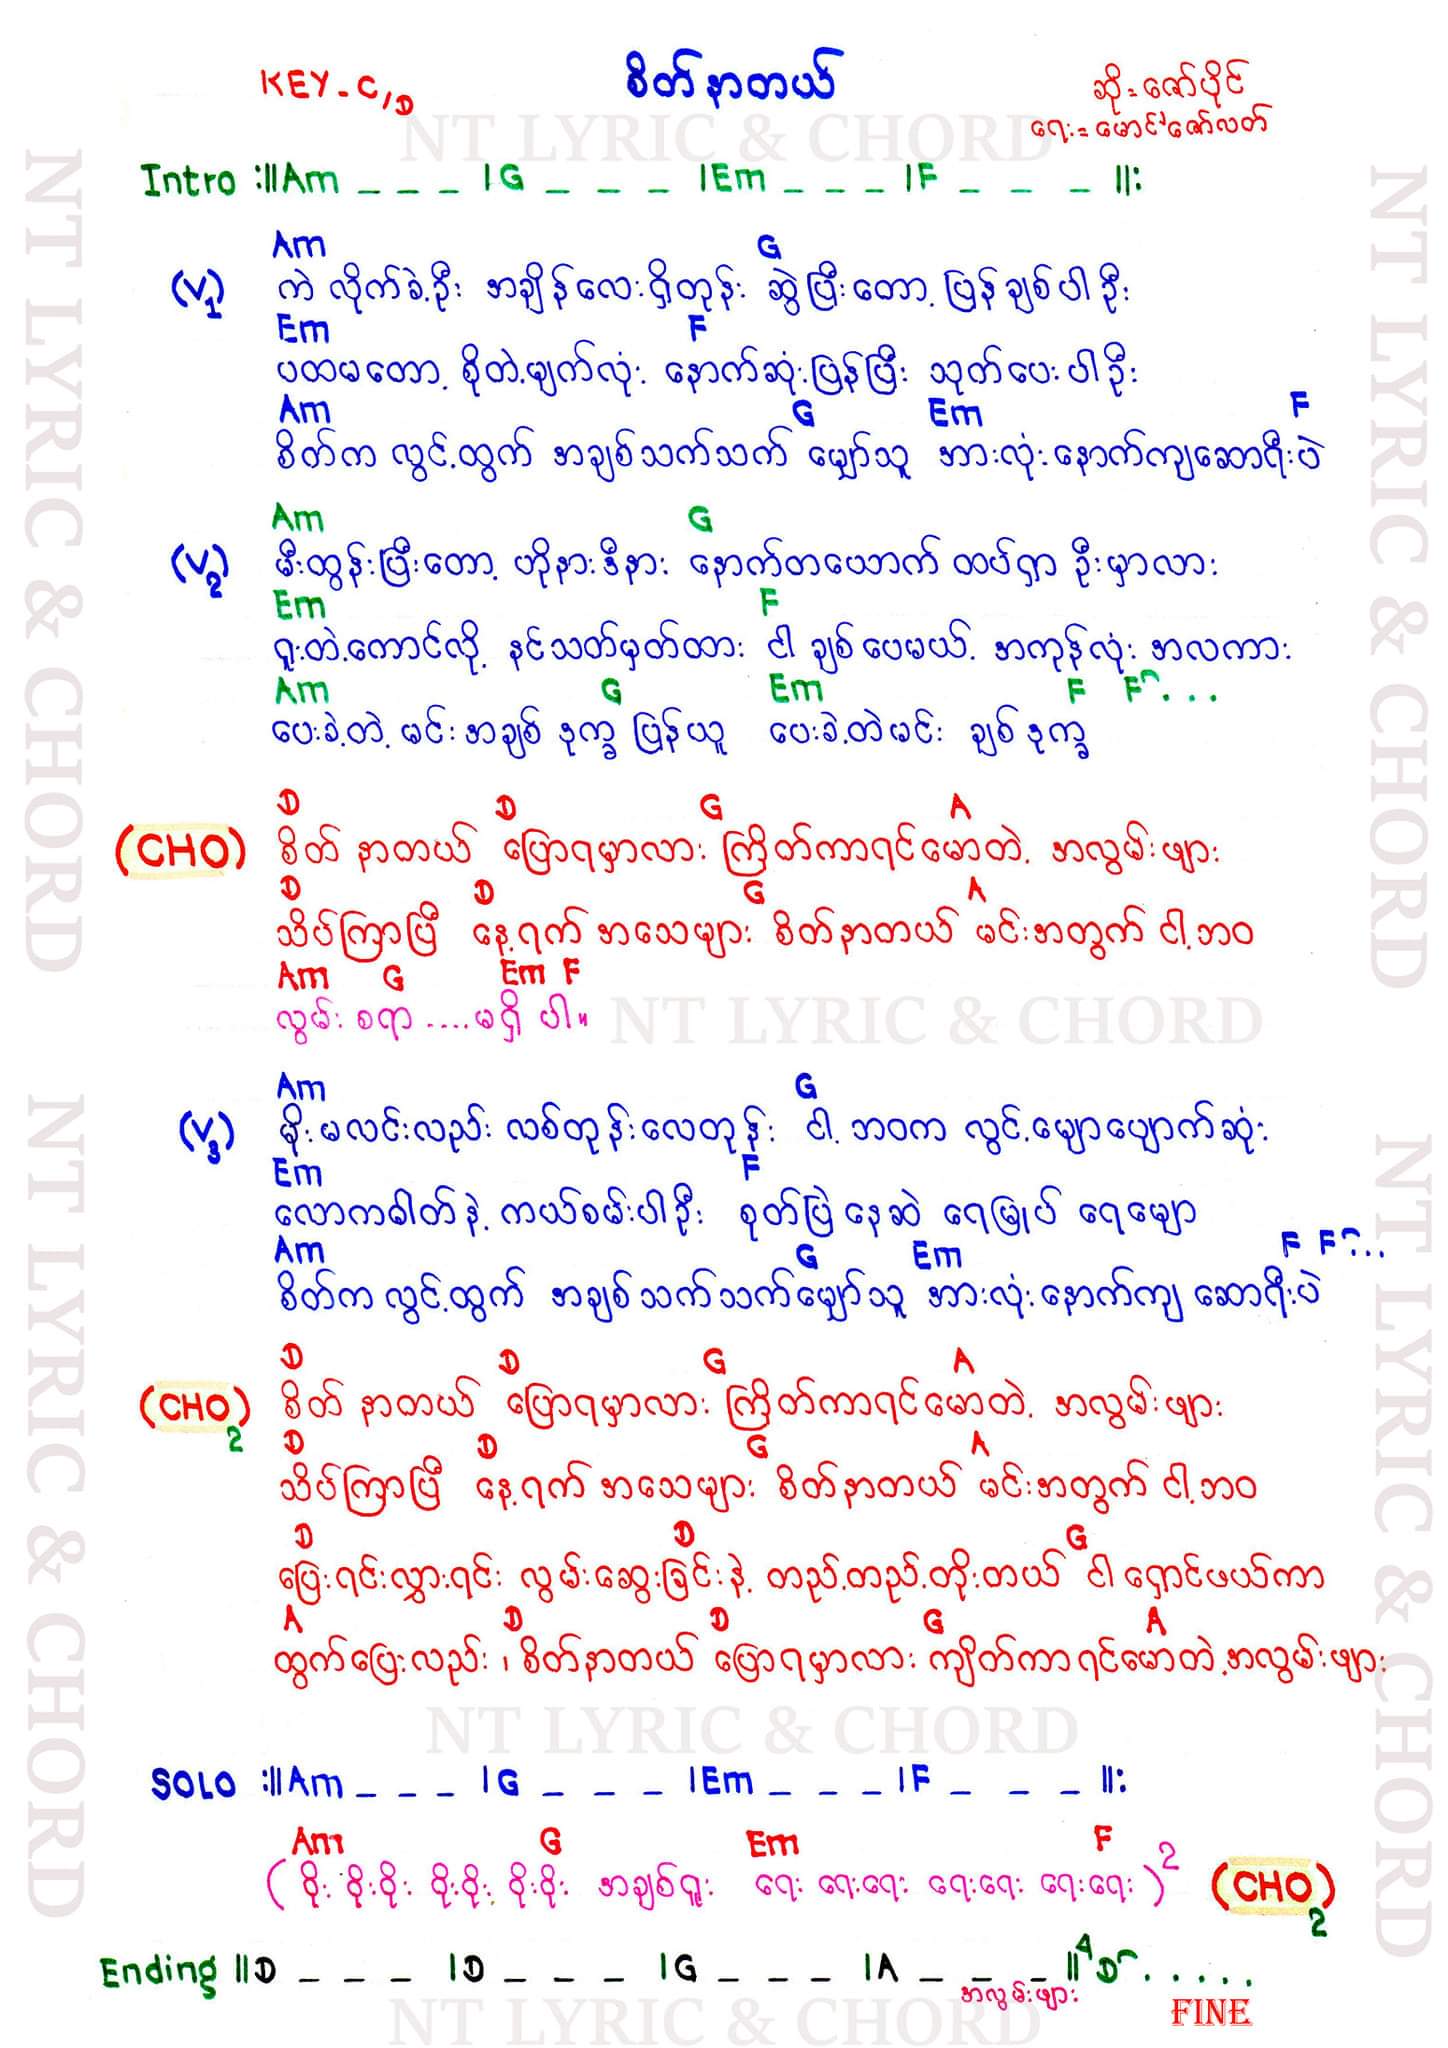 KEY - C, D
စိတ်နာတယ်
ဆို = ဇော်ပိုင်
ရေး = မောင်မောင်ဇော်လတ်
NT LYRIC & CHORD
Intro :||Am _ _ _ |G _ _ _ |Em _ _ _ |F _ _ _ ||:
Am G
(V1) ကဲ လိုက်ခဲ့ဦး အချိန်လေးရှိတုန်း ဆွဲပြီးတော့ ပြန်ချစ်ပါဦး
Em F
ပထမတော့ စိုတဲ့မျက်လုံး နောက်ဆုံးပြန်ပြီး သုတ်ပေးပါဦး
Am G Em F
စိတ်က လွင့်ထွက် အချစ်သက်သက် မျှော်သူ အားလုံးနောက်ကျဆောရီးပဲ
Am G
(V2) မီးထွန်းပြီးတော့ ဟိုနားဒီနား နောက်တယောက် ထပ်ရှာ ဦးမှာလား
Em F
ရူးတဲ့ကောင်လို့ နင်သတ်မှတ်ထား ငါ ချစ်ပေမယ့် အကုန်လုံး အလကား
Am G Em F F...
ပေးခဲ့တဲ့ မင်းအချစ် ဒုက္ခ ပြန်ယူ ပေးခဲ့တဲ့မင်း ချစ် ဒုက္ခ
D D G A
(CHO) စိတ် နာတယ် ပြောရမှာလား ကြိတ်ကာရင်မောတဲ့ အလွမ်းဖျား
D D G A
သိပ်ကြာပြီ နေ့ရက် အသေများ စိတ်နာတယ် မင်းအတွက် ငါ့ဘဝ
Am G Em F
လွမ်း စရာ ....မရှိ ပါ။
NT LYRIC & CHORD
Am G
(V3) မိုးမလင်းလည်း လစ်တုန်းလေတုန်း ငါ့ ဘဝက လွင့်မျောပျောက်ဆုံး
Em F
လောကဓါတ်နဲ့ ကယ်စမ်းပါဦး စုတ်ပြဲနေဆဲ ရေမြုပ် ရေမျော
Am G Em F F...
စိတ်က လွင့်ထွက် အချစ်သက်သက်မျှော်သူ အားလုံးနောက်ကျ ဆောရီးပဲ
D D G A
(CHO2) စိတ် နာတယ် ပြောရမှာလား ကြိတ်ကာရင်မောတဲ့ အလွမ်းဖျား
D D G A
သိပ်ကြာပြီ နေ့ရက် အသေများ စိတ်နာတယ် မင်းအတွက် ငါ့ဘဝ
D D G
ပြေးရင်းလွှားရင်း လွမ်းဆွေးခြင်းနဲ့ တည့်တည့်တိုးတယ် ငါ ရှောင်ဖယ်ကာ
A D D G A
ထွက်ပြေးလည်း ၊ စိတ်နာတယ် ပြောရမှာလား ကျိတ်ကာရင်မောတဲ့အလွမ်းဖျား
NT LYRIC & CHORD
SOLO :||Am _ _ _ |G _ _ _ |Em _ _ _ |F _ _ _ ||:
Am G Em F
(စိုး စိုးစိုး စိုးစိုး စိုးစိုး အချစ်ရူး ရေး ရေးရေး ရေးရေး ရေးရေး)2 (CHO2)
Ending ||D _ _ _ |D _ _ _ |G _ _ _ |A _ _ _ ||4 D.....
အလွမ်းဖျား
FINE
NT LYRIC & CHORD
NT LYRIC & CHORD
NT LYRIC & CHORD
NT LYRIC & CHORD
NT LYRIC & CHORD